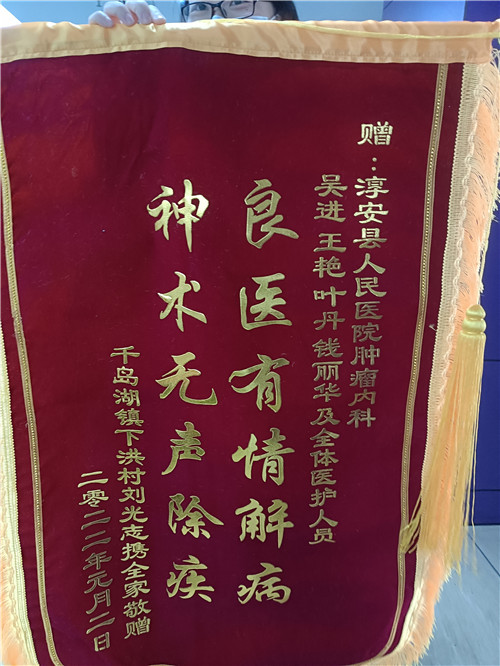 赠：淳安县人民医院肿瘤内科
吴进 王艳 叶丹 钱丽华 及全体医护人员
良医有情解病
神术无声除疾
千岛湖镇下洪村刘光志携全家敬赠
二零二二年元月二日